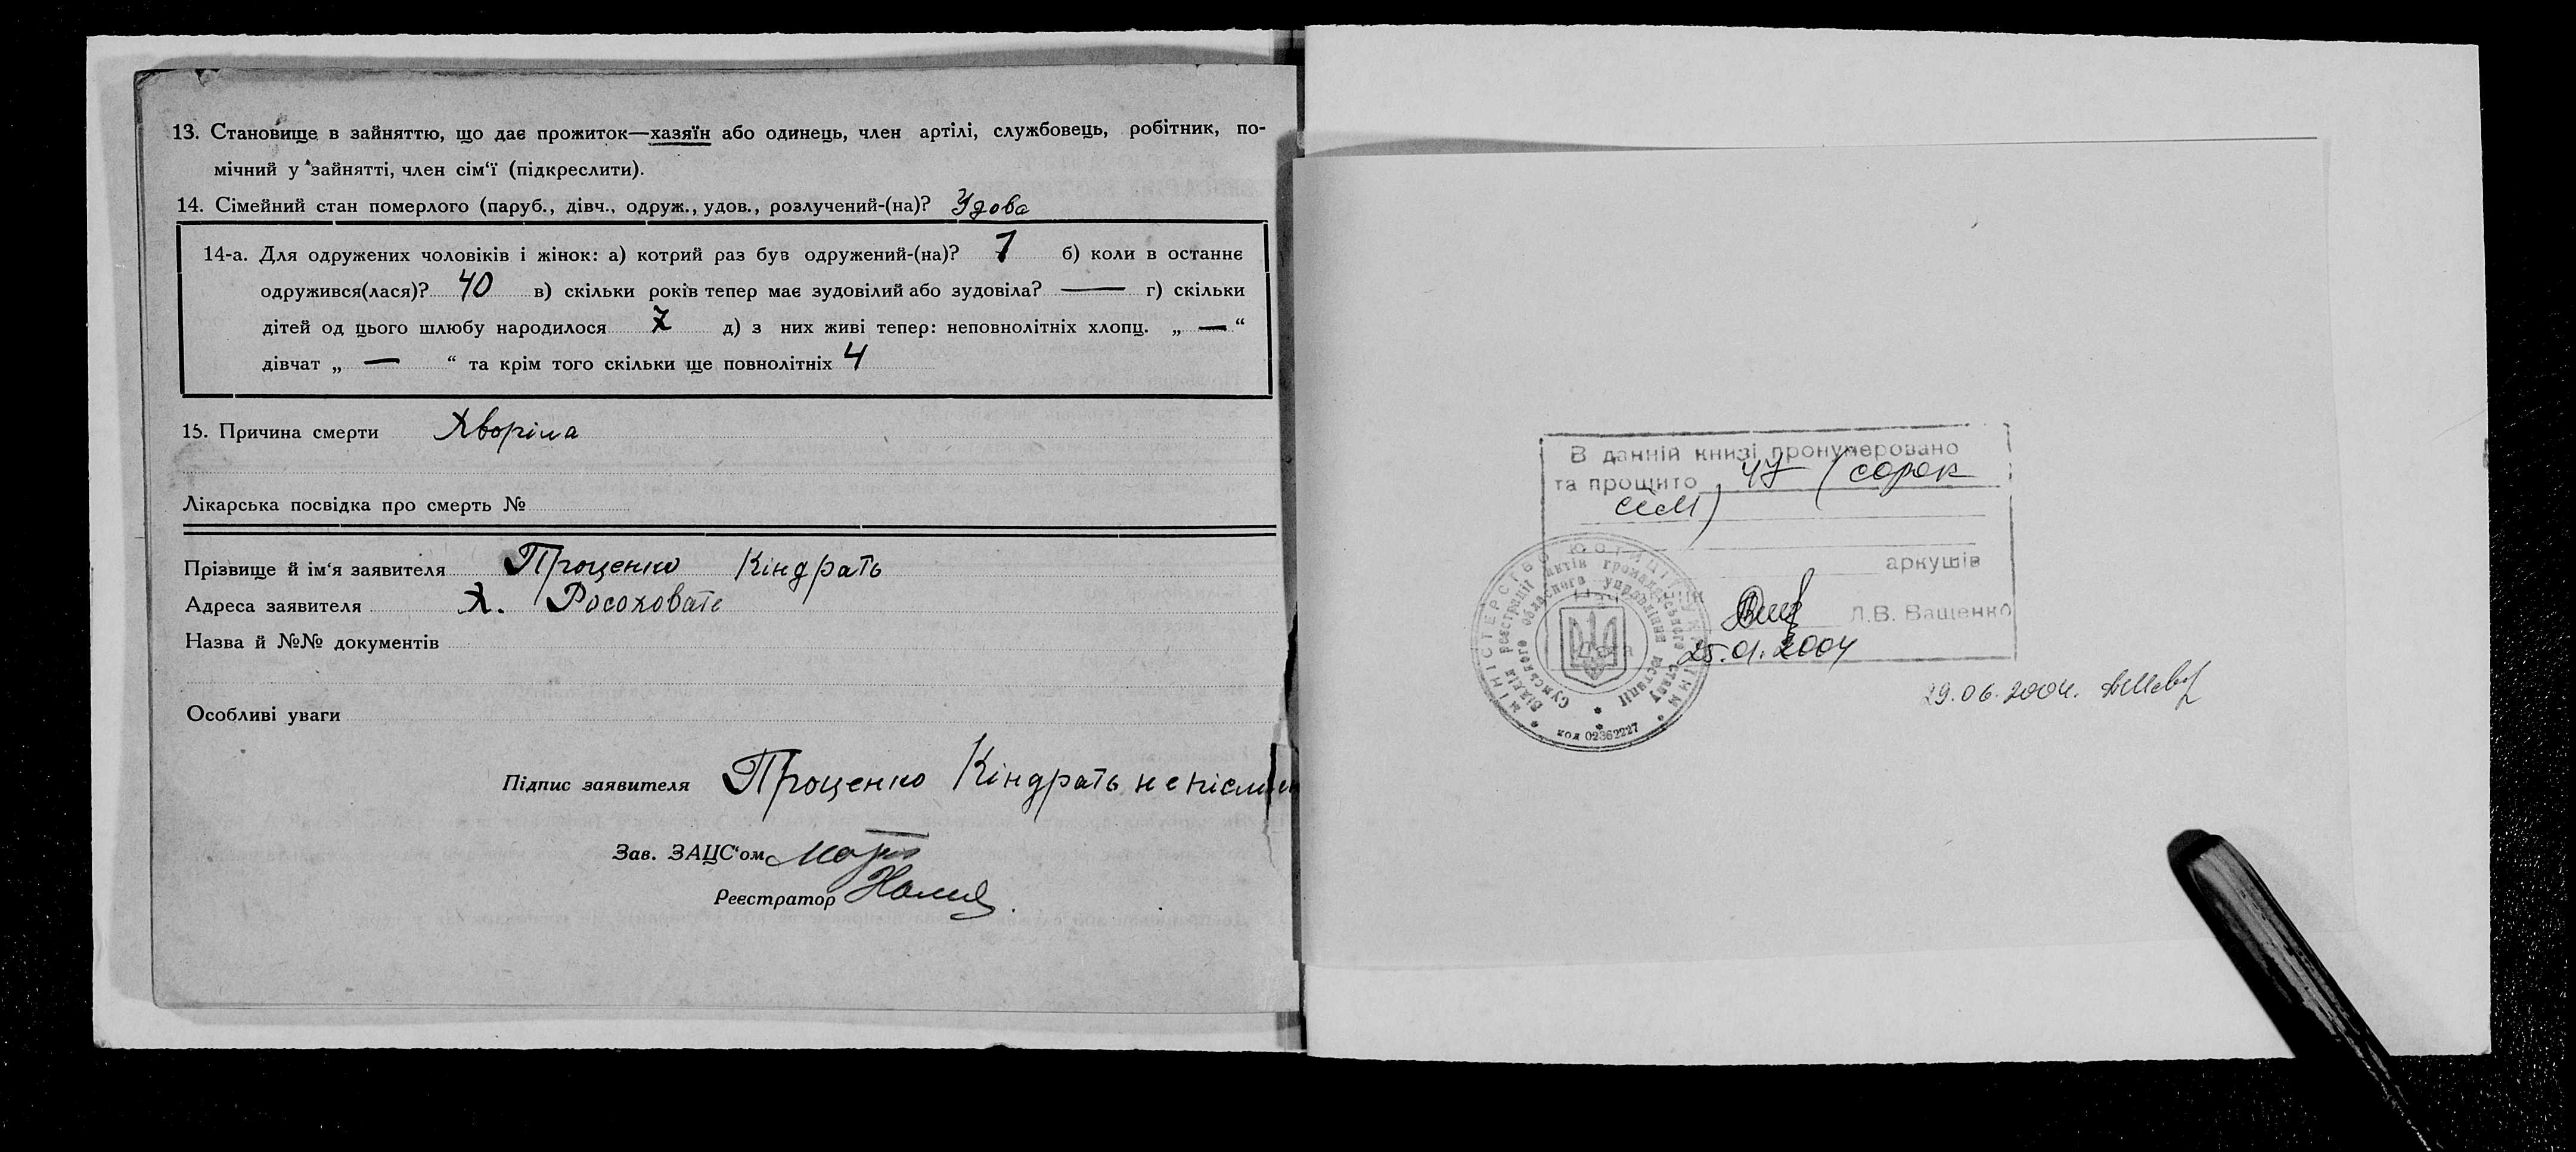 13. Становище в зайняттю, що дає прожиток—хазяїн або одинець, член артілі, службовець, робітник, по-
мічний у зайнятті, член сім‘ї (підкреслити).
14. Сімейний стан померлого (паруб., дівч., одруж., удов., розлучений-(на)? Удова
14-а. Для одружених чоловіків і жінок: а) котрий раз був одружений-(на)? 1 б) коли в останнє
одружився(лася)? 40 в) скільки років тепер має зудовілий або зудовіла? — г) скільки
дітей од цього шлюбу народилося 7 д) з них живі тепер: неповнолітніх хлопц. „ — “
дівчат „ — “ та крім того скільки ще повнолітніх 4
15. Причина смерти Хворіла
Лікарська посвідка про смерть №
Прізвище й ім‘я заявителя Проценко Кіндрать
Адреса заявителя х. Росоховате
Назва й №№ документів
Особливі уваги
Підпис заявителя Проценко Кіндрать
Зав. ЗАЦС‘ом
Реєстратор
В данній книзі пронумеровано
та прошито 47 (сорок
сім)
аркушів
Л.В. Ващенко
Дата 25.01.2004
МІНІСТЕРСТВО ЮСТИЦІЇ УКРАЇНИ
Відділ реєстрації актів громадянського стану
Сумського обласного управління юстиції
код 02362227
29.06.2004.